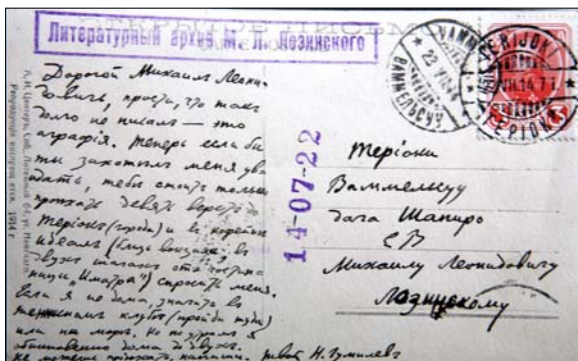 ОТКРЫТОЕ ПИСЬМО
Литературный архив М. Л. Лозинского
ВАММЕЛЬСУУ
TERIJOKI
VII.14
Дорогой Михаил Леони-
дович, прости, что так
долго не писал — это
аграфія. Теперь если бы
ты захотѣлъ меня уви
дать, тебѣ стоитъ только
проѣхать девять верстъ до
Теріокъ (города) и въ кофейнѣ
идеалъ (близь вокзала, въ
двухъ шагахъ отъ гостин-
ницы „Иматра") спросить меня.
Если я не дома, значитъ въ
теннисномъ клубѣ (пройди туда)
или на морѣ. Но по утрамъ я
обыкновенно дома до двухъ.
не можешь пріѣхать, напиши. твой Н. Гумилевъ
14-07-22
Теріоки
Ваммельсуу
дача Шапиро
ЕВ
Михаилу Леонидовичу
Лозинскому
1914 г